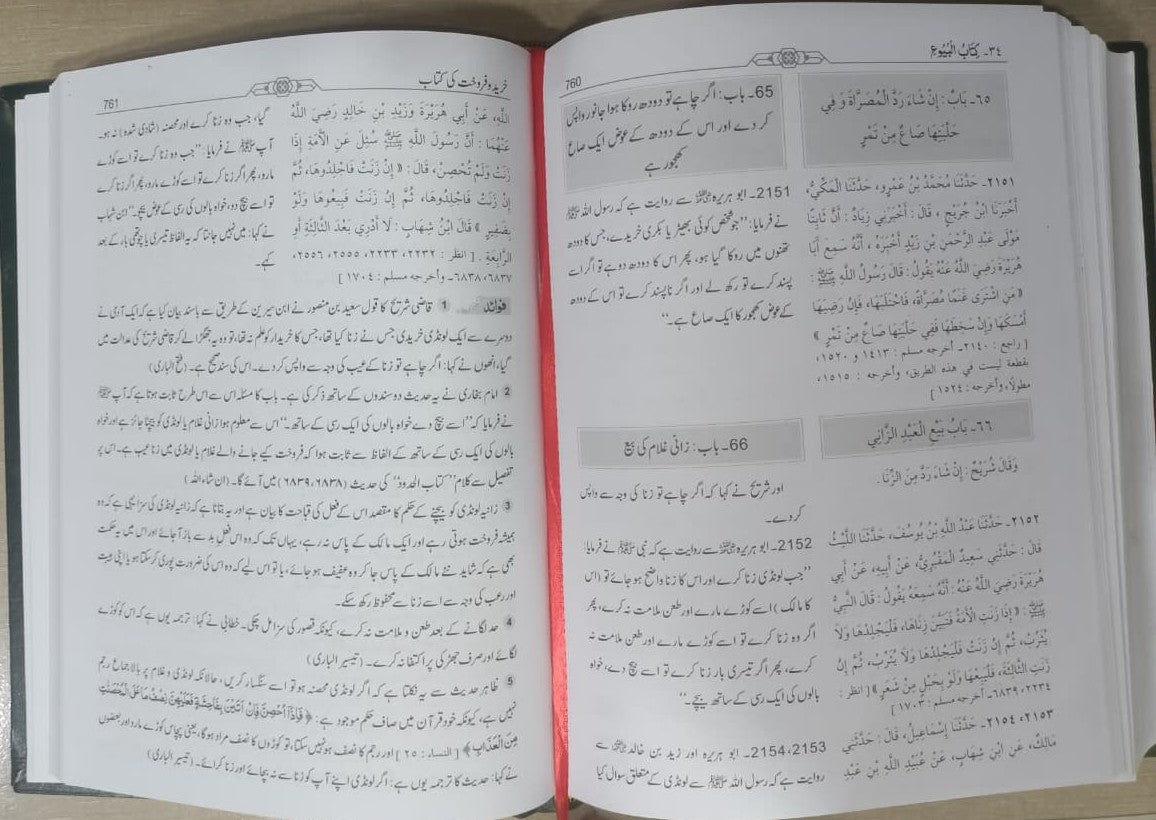 ٣٤۔ كِتَابُ الْبُيُوعِ
760
٦٥۔ بَابٌ: إِنْ شَاءَ رَدَّ الْمُصَرَّاةَ وَفِي
حَلْبَتِهَا صَاعٌ مِنْ تَمْرٍ
٢١٥١۔ حَدَّثَنَا مُحَمَّدُ بْنُ عَمْرٍو، حَدَّثَنَا الْمَكِّيُّ،
أَخْبَرَنَا ابْنُ جُرَيْجٍ، قَالَ: أَخْبَرَنِي زِيَادٌ: أَنَّ ثَابِتًا
مَوْلَى عَبْدِ الرَّحْمَنِ بْنِ زَيْدٍ أَخْبَرَهُ، أَنَّهُ سَمِعَ أَبَا
هُرَيْرَةَ رَضِيَ اللَّهُ عَنْهُ يَقُولُ: قَالَ رَسُولُ اللَّهِ ﷺ:
«مَنِ اشْتَرَى غَنَمًا مُصَرَّاةً، فَاحْتَلَبَهَا، فَإِنْ رَضِيَهَا
أَمْسَكَهَا وَإِنْ سَخِطَهَا فَفِي حَلْبَتِهَا صَاعٌ مِنْ تَمْرٍ»
[راجع: ٢١٤٠۔ أخرجه مسلم: ١٤١٣ و ١٥٢٠،
بقطعة ليست في هذه الطريق، وأخرجه: ١٥١٥،
مطولاً، وأخرجه: ١٥٢٤]
٦٦۔ بَابُ بَيْعِ الْعَبْدِ الزَّانِي
وَقَالَ شُرَيْحٌ: إِنْ شَاءَ رَدَّ مِنَ الزِّنَا.
٢١٥٢۔ حَدَّثَنَا عَبْدُ اللَّهِ بْنُ يُوسُفَ، حَدَّثَنَا اللَّيْثُ
قَالَ: حَدَّثَنِي سَعِيدٌ الْمَقْبُرِيُّ، عَنْ أَبِيهِ، عَنْ أَبِي
هُرَيْرَةَ رَضِيَ اللَّهُ عَنْهُ: أَنَّهُ سَمِعَهُ يَقُولُ: قَالَ النَّبِيُّ
ﷺ: «إِذَا زَنَتِ الْأَمَةُ فَتَبَيَّنَ زِنَاهَا، فَلْيَجْلِدْهَا وَلَا
يُثَرِّبْ، ثُمَّ إِنْ زَنَتْ فَلْيَجْلِدْهَا وَلَا يُثَرِّبْ، ثُمَّ إِنْ
زَنَتِ الثَّالِثَةَ، فَلْيَبِعْهَا وَلَوْ بِحَبْلٍ مِنْ شَعَرٍ» [انظر:
٢٢٣٤، ٦٨٣٩۔ أخرجه مسلم: ١٧٠٣]
٢١٥٣، ٢١٥٤۔ حَدَّثَنَا إِسْمَاعِيلُ، قَالَ: حَدَّثَنِي
مَالِكٌ، عَنِ ابْنِ شِهَابٍ، عَنْ عُبَيْدِ اللَّهِ بْنِ عَبْدِ
65۔ باب: اگر چاہے تو دودھ روکا ہوا جانور واپس
کر دے اور اس کے دودھ کے عوض ایک صاع
کھجور ہے
2151۔ ابو ہریرہ ؓ سے روایت ہے کہ رسول اللہ ﷺ
نے فرمایا: ”جو شخص کوئی بھیڑ یا بکری خریدے، جس کا دودھ
تھنوں میں روکا گیا ہو، پھر اس کا دودھ دوہے تو اگر اسے
پسند کرے تو رکھ لے اور اگر ناپسند کرے تو اس کے دودھ
کے عوض کھجور کا ایک صاع ہے۔“
66۔ باب: زانی غلام کی بیع
اور شریح نے کہا کہ اگر چاہے تو زنا کی وجہ سے واپس
کر دے۔
2152۔ ابو ہریرہ ؓ سے روایت ہے کہ نبی ﷺ نے فرمایا:
”جب لونڈی زنا کرے اور اس کا زنا واضح ہو جائے تو (اس
کا مالک) اسے کوڑے مارے اور طعن ملامت نہ کرے، پھر
اگر وہ زنا کرے تو اسے کوڑے مارے اور طعن ملامت نہ
کرے، پھر اگر تیسری بار زنا کرے تو اسے بیچ دے، خواہ
بالوں کی ایک رسی کے ساتھ بیچے۔“
2154,2153۔ ابو ہریرہ اور زید بن خالد ؓ سے
روایت ہے کہ رسول اللہ ﷺ سے لونڈی کے متعلق سوال کیا
خرید و فروخت کی کتاب
761
اللَّهِ، عَنْ أَبِي هُرَيْرَةَ وَزَيْدِ بْنِ خَالِدٍ رَضِيَ اللَّهُ
عَنْهُمَا: أَنَّ رَسُولَ اللَّهِ ﷺ سُئِلَ عَنِ الْأَمَةِ إِذَا
زَنَتْ وَلَمْ تُحْصِنْ، قَالَ: «إِنْ زَنَتْ فَاجْلِدُوهَا، ثُمَّ
إِنْ زَنَتْ فَاجْلِدُوهَا، ثُمَّ إِنْ زَنَتْ فَبِيعُوهَا وَلَوْ
بِضَفِيرٍ» قَالَ ابْنُ شِهَابٍ: لَا أَدْرِي بَعْدَ الثَّالِثَةِ أَوِ
الرَّابِعَةِ. [انظر: ٢٢٣٢، ٢٢٣٣، ٢٥٥٥، ٢٥٥٦،
٦٨٣٧، ٦٨٣٨۔ وأخرجه مسلم: ١٧٠٤]
گیا، جب وہ زنا کرے اور محصنہ (شادی شدہ) نہ ہو۔
آپ ﷺ نے فرمایا: ”جب وہ زنا کرے تو اسے کوڑے
مارو، پھر اگر زنا کرے تو اسے کوڑے مارو، پھر اگر زنا کرے
تو اسے بیچ دو، خواہ بالوں کی رسی کے عوض بیچو۔“ ابن شہاب
نے کہا: میں نہیں جانتا کہ یہ الفاظ تیسری یا چوتھی بار کے بعد
کہے۔
فوائد 1 قاضی شریح کا قول سعید بن منصور نے ابن سیرین کے طریق سے باسند بیان کیا ہے کہ ایک آدمی نے
دوسرے سے ایک لونڈی خریدی جس نے زنا کیا تھا، جس کا خریدار کو علم نہ تھا، تو وہ یہ جھگڑا لے کر قاضی شریح کی عدالت میں
گیا، انھوں نے کہا: اگر چاہے تو زنا کے عیب کی وجہ سے واپس کر دے۔ اس کی سند صحیح ہے۔ (فتح الباری)
2 امام بخاری نے یہ حدیث دو سندوں کے ساتھ ذکر کی ہے۔ باب کا مسئلہ اس سے اس طرح ثابت ہوتا ہے کہ آپ ﷺ
نے فرمایا کہ ”اسے بیچ دے خواہ بالوں کی ایک رسی کے ساتھ۔“ اس سے معلوم ہوا زانی غلام یا لونڈی کو بیچنا جائز ہے اور خواہ
بالوں کی ایک رسی کے ساتھ کے الفاظ سے ثابت ہوا کہ فروخت کیے جانے والے غلام یا لونڈی میں زنا عیب ہے۔ اس پر
تفصیل سے کلام ”کتاب الحدود“ کی حدیث (۶۸۳۸، ۶۸۳۹) میں آئے گا۔ (ان شاء اللہ)
3 زانیہ لونڈی کو بیچنے کے حکم کا مقصد اس کے فعل کی قباحت کا بیان ہے اور یہ بتانا ہے کہ زانیہ لونڈی کی سزا یہی ہے کہ وہ
ہمیشہ فروخت ہوتی رہے اور ایک مالک کے پاس نہ رہے، یہاں تک کہ وہ اس فعلِ بد سے باز آ جائے اور اس میں یہ حکمت
بھی ہے کہ شاید نئے مالک کے پاس جا کر وہ عفیف ہو جائے، یا تو اس لیے کہ وہ اس کی ضرورت پوری کر سکتا ہو یا اپنی ہیبت
اور رعب کی وجہ سے اسے زنا سے محفوظ رکھ سکے۔
4 حد لگانے کے بعد طعن و ملامت نہ کرے، کیونکہ قصور کی سزا مل چکی۔ خطابی نے کہا: ترجمہ یوں ہے کہ اس کو کوڑے
لگائے اور صرف جھڑکی پر اکتفا نہ کرے۔ (تیسیر الباری)
5 ظاہر حدیث سے یہ نکلتا ہے کہ اگر لونڈی محصنہ ہو تو اسے سنگسار کریں، حالانکہ لونڈی و غلام پر بالاجماع رجم
نہیں ہے، کیونکہ خود قرآن میں صاف حکم موجود ہے: ﴿فَإِذَا أُحْصِنَّ فَإِنْ أَتَيْنَ بِفَاحِشَةٍ فَعَلَيْهِنَّ نِصْفُ مَا عَلَى الْمُحْصَنٰتِ
مِنَ الْعَذَابِ﴾ [النساء: ۲۵] اور رجم کا نصف ہو نہیں سکتا، تو کوڑوں کا نصف مراد ہوگا، یعنی پچاس کوڑے مارو اور بعضوں
نے کہا: حدیث کا ترجمہ یوں ہے: اگر لونڈی اپنے آپ کو زنا سے نہ بچائے اور زنا کرائے۔ (تیسیر الباری)